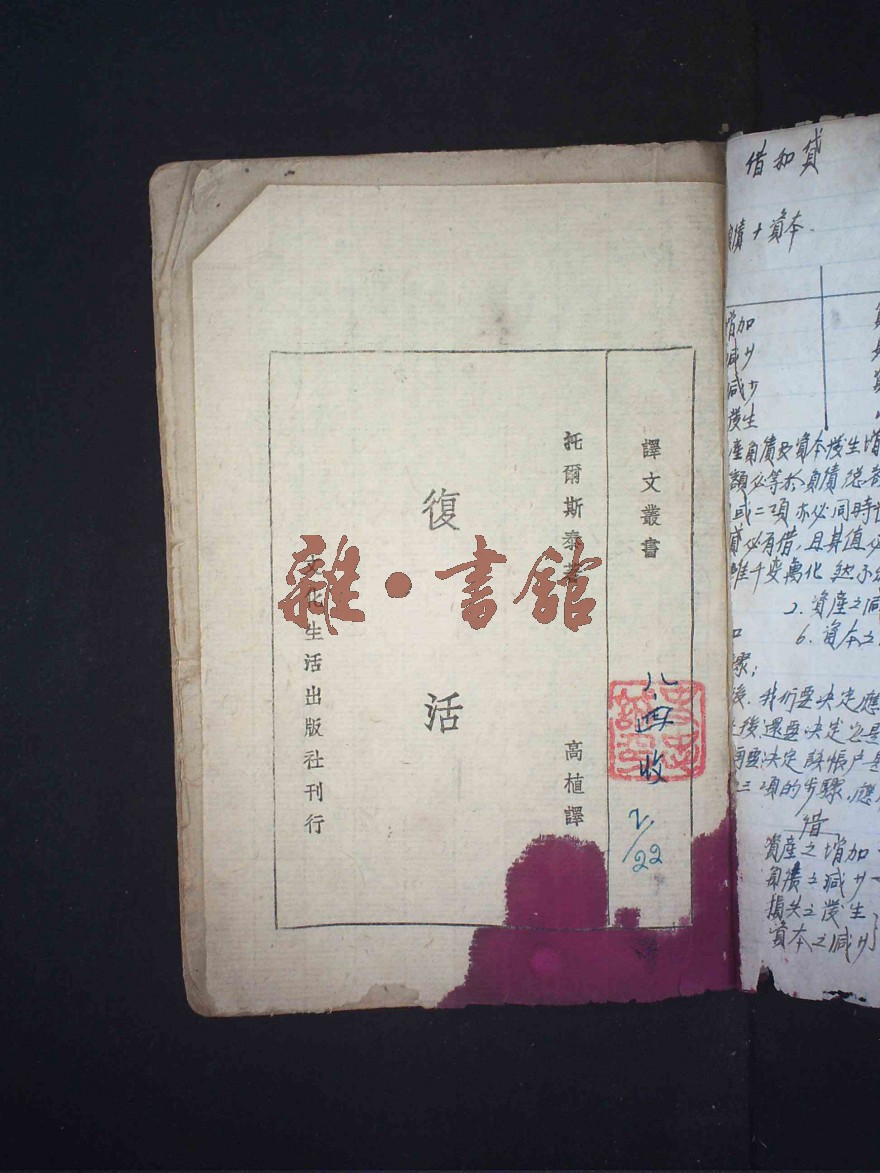 譯文叢書
托爾斯泰著
高植譯
復活
文化生活出版社刊行
雜·書館
八·四
收
2/22
借和貸
負債+資本
增加
減少
減少
發生
產負債及資本發生增
額必等於負債總
或二項亦必同時
貸必有借,且其值必
雖千變萬化 然不
2.資產之減
6.資本之
驟;
後,我们要決定應
後,還要決定它是
要決定該帳户是
三項的步驟,應
借
資產之增加
負債之減少
損失之發生
資本之減少